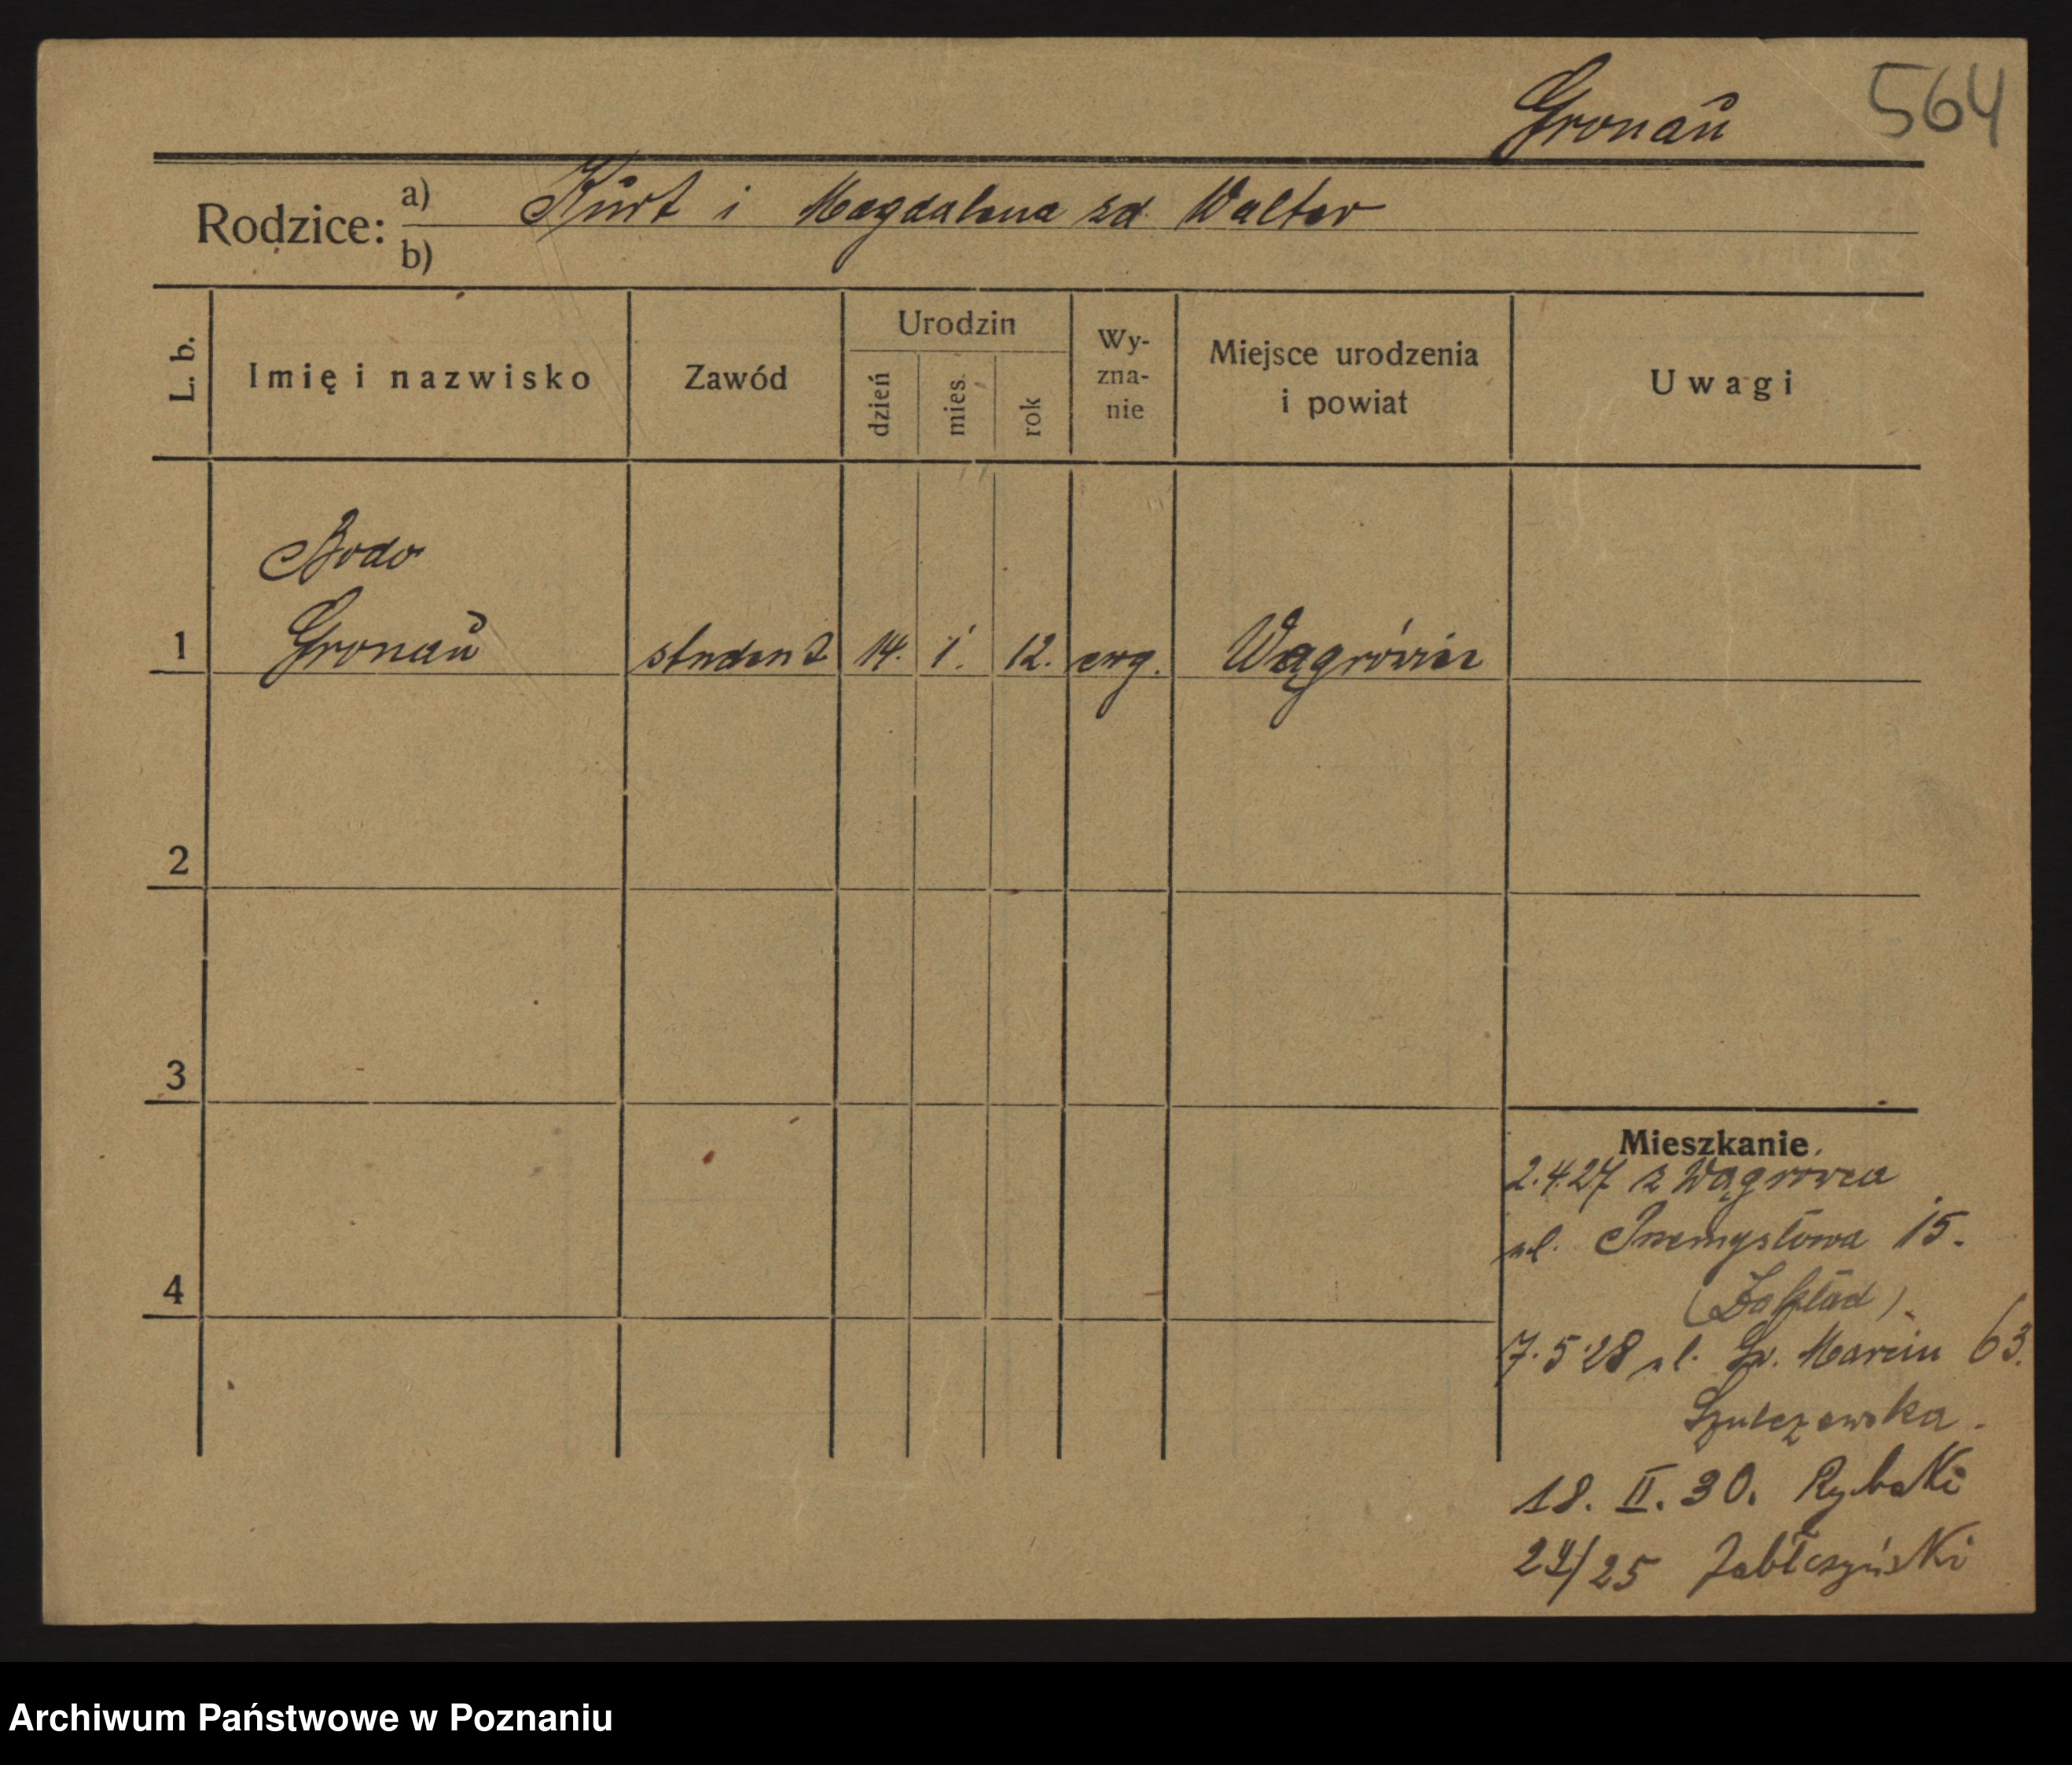 Gronau 564
Rodzice: a) Kurt i Magdalena zd. Walter
b)
L. b. Imię i nazwisko Zawód Urodzin dzień mies. rok Wy-zna-nie Miejsce urodzenia i powiat Uwagi
Bodo
1 Gronau student 14. 1. 12. ewg. Wągrówiec
2
3
4
Mieszkanie
2.4.27 z Wągrowca
ul. Przemysłowa 15.
(Zakład)
7.5.28 ul. Św. Marcin 63.
Szulczewska.
18. II. 30. Rybaki
24/25 Jabłczyński
Archiwum Państwowe w Poznaniu